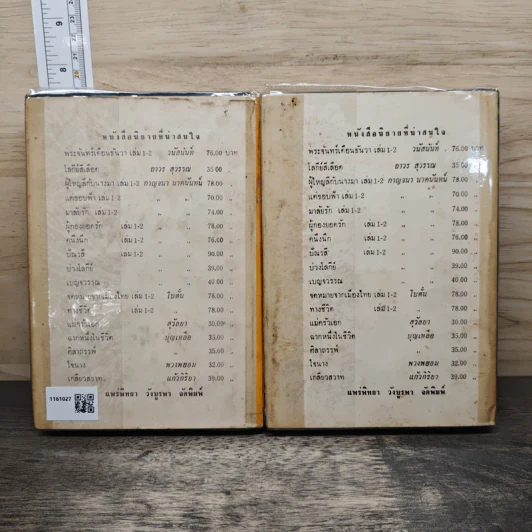 หนังสือนิยายที่น่าสนใจ
พระจันทร์เดือนธันวา เล่ม 1-2 วนัสนันท์ 76.00 บาท
โลกีย์สีเลือด ถาวร สุวรรณ 35.00
ผู้ใหญ่ลีกับนางมา เล่ม 1-2 กาญจนา นาคนันทน์ 78.00 ,,
แคชอบฟ้า เล่ม 1-2 ,, ,, 70.00 ,,
มาลัยรัก เล่ม 1-2 ,, ,, 74.00 ,,
ผู้กองยอดรัก เล่ม 1-2 ,, ,, 78.00 ,,
คนึงนึก เล่ม 1-2 ,, ,, 76.00 ,,
ปัณรสี เล่ม 1-2 ,, ,, 90.00 ,,
บ่วงโลกีย์ ,, ,, 39.00 ,,
เบญจวรรณ ,, ,, 40.00 ,,
จดหมายจากเมืองไทย เล่ม 1-2 โบตั๋น 78.00 ,,
ทางชีวิต เล่ม 1-2 ,, 78.00 ,,
แม่ครัวเอก สุวัลยา 30.00 ,,
ฉากหนึ่งในชีวิต บุญเหลือ 33.00 ,,
ศิลาถรรพ์ ,, 35.00 ,,
ใจนาง พวงพยอม 32.00 ,,
เกลียวสวาท แก้วกิริยา 39.00 ,,
แพร่พิทยา วังบูรพา จัดพิมพ์
1161027
หนังสือนิยายที่น่าสนใจ
พระจันทร์เดือนธันวา เล่ม 1-2 วนัสนันท์ 76.00 บาท
โลกีย์สีเลือด ถาวร สุวรรณ 35.00 ,,
ผู้ใหญ่ลีกับนางมา เล่ม 1-2 กาญจนา นาคนันทน์ 78.00 ,,
แคชอบฟ้า เล่ม 1-2 ,, ,, 70.00 ,,
มาลัยรัก เล่ม 1-2 ,, ,, 74.00 ,,
ผู้กองยอดรัก เล่ม 1-2 ,, ,, 78.00 ,,
คนึงนึก เล่ม 1-2 ,, ,, 76.00 ,,
ปัณรสี เล่ม 1-2 ,, ,, 90.00 ,,
บ่วงโลกีย์ ,, ,, 39.00 ,,
เบญจวรรณ ,, ,, 40.00 ,,
จดหมายจากเมืองไทย เล่ม 1-2 โบตั๋น 78.00 ,,
ทางชีวิต เล่ม 1-2 ,, 78.00 ,,
แม่ครัวเอก สุวัลยา 30.00 ,,
ฉากหนึ่งในชีวิต บุญเหลือ 33.00 ,,
ศิลาถรรพ์ ,, 35.00 ,,
ใจนาง พวงพยอม 32.00 ,,
เกลียวสวาท แก้วกิริยา 39.00 ,,
แพร่พิทยา วังบูรพา จัดพิมพ์